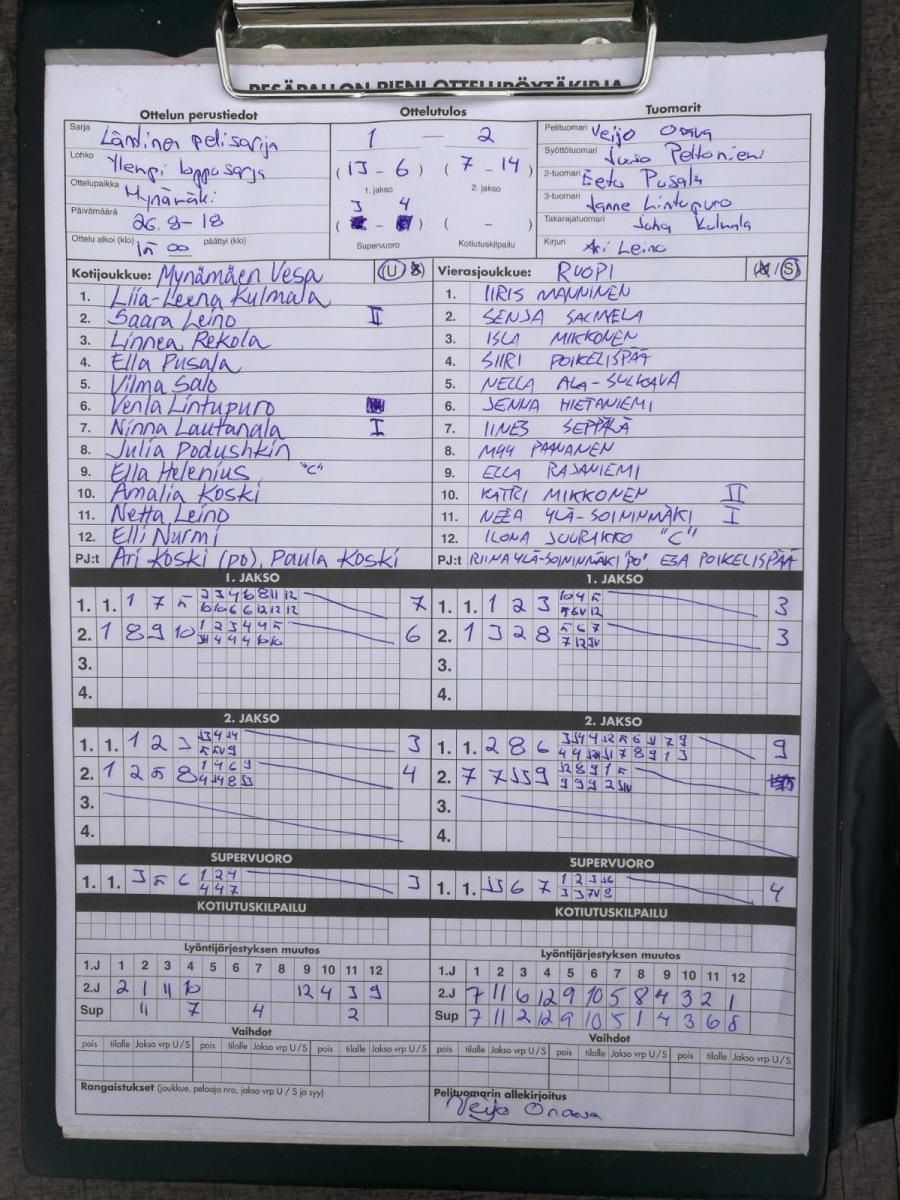 PESÄPALLON PIENI OTTELUPÖYTÄKIRJA
Ottelun perustiedot
Ottelutulos
Tuomarit
Sarja Läntinen pelisarja
Lohko Ylempi loppusarja
Ottelupaikka Mynämäki
Päivämäärä 26.8-18
Ottelu alkoi (klo) 15 00 päättyi (klo)
1 — 2
(13 - 6) (7 - 14)
1. jakso 2. jakso
3 4
( - ) ( - )
Supervuoro Kotiutuskilpailu
Pelituomari Veijo
Syöttötuomari Juso Peltoniemi
2-tuomari Eetu Pusala
3-tuomari Janne Lintupuro
Takarajatuomari Juha Kulmala
Kirjuri Ari Leino
Kotijoukkue: Mynämäen Vesa (U / S)
1. Liia-Leena Kulmala
2. Saara Leino II
3. Linnea Rekola
4. Ella Pusala
5. Vilma Salo
6. Venla Lintupuro
7. Ninna Lautanala I
8. Julia Podushkin
9. Ella Helenius "C"
10. Amalia Koski
11. Netta Leino
12. Elli Nurmi
PJ:t Ari Koski (po), Paula Koski
Vierasjoukkue: RUOPI (U / S)
1. IIRIS MANNINEN
2. SENJA SALMELA
3. ISLA MIKKONEN
4. SIIRI POIKELISPÄÄ
5. NELLA ALA-SULKAVA
6. JENNA HIETANIEMI
7. IINES SEPPÄLÄ
8. MYY PAANANEN
9. ELLA RAJANIEMI
10. KATRI MIKKONEN II
11. NEEA YLÄ-SOININMÄKI I
12. ILONA JUURIKKO "C"
PJ:t RIINA YLÄ-SOININMÄKI "PO" ESA POIKELISPÄÄ
1. JAKSO
1. 1. 1 7 5 2 3 4 6 8 11 12 7
10 10 6 6 12 12 12
2. 1 8 9 10 1 2 3 4 4 5 6
3.
4.
1. JAKSO
1. 1. 1 2 3 10 4 5 3
2. 1 3 2 8 5 6 7 3
3.
4.
2. JAKSO
1. 1. 1 2 3 3
2. 1 2 5 8 1 4 6 9 4
3.
4.
2. JAKSO
1. 1. 2 8 6 9
2. 7 7 11 9 12 8 9 1 5
3.
4.
SUPERVUORO
1. 1. 3 5 6 1 2 4 3
4 4 7
SUPERVUORO
1. 1. 11 6 7 4
KOTIUTUSKILPAILU
KOTIUTUSKILPAILU
Lyöntijärjestyksen muutos
1.J 1 2 3 4 5 6 7 8 9 10 11 12
2.J 2 1 11 10 12 4 3 9
Sup 11 7 4 2
Lyöntijärjestyksen muutos
1.J 1 2 3 4 5 6 7 8 9 10 11 12
2.J 7 11 6 12 9 10 5 8 4 3 2 1
Sup 7 11 2 12 9 10 5 1 4 3 6 8
Vaihdot
pois tilalle Jakso vrp U/S pois tilalle Jakso vrp U/S pois tilalle Jakso vrp U/S
Vaihdot
pois tilalle Jakso vrp U/S pois tilalle Jakso vrp U/S pois tilalle Jakso vrp U/S
Rangaistukset (joukkue, pelaaja nro, jakso vrp U / S ja syy)
Pelituomarin allekirjoitus
Veijo